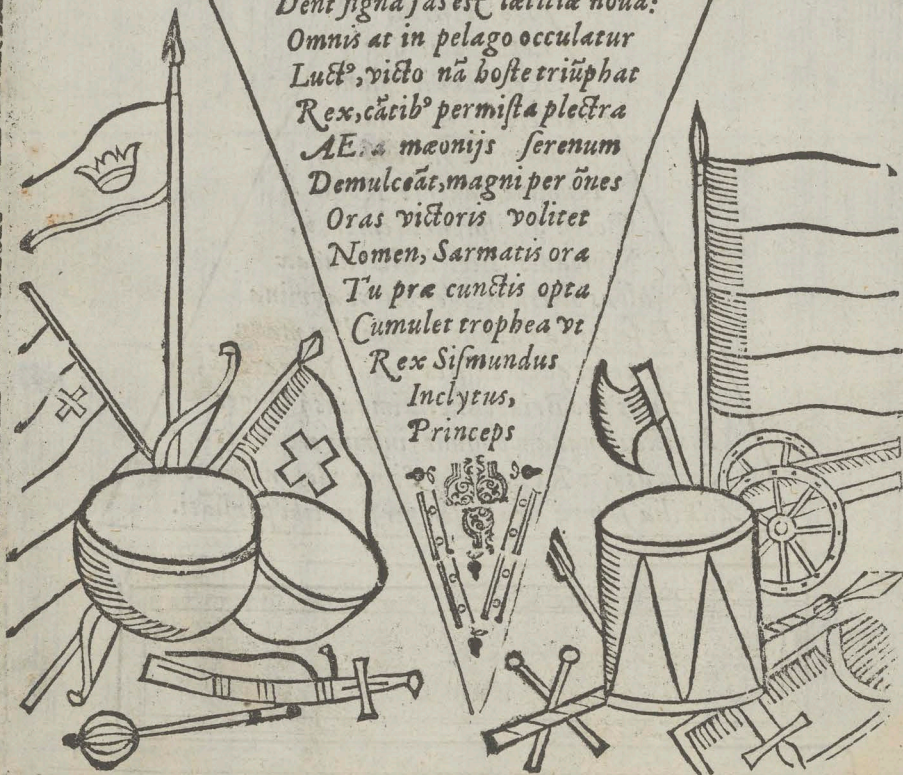 Dent signa fas est lætitiæ nova:
Omnis at in pelago occulatur
Luctꝰ, victo nā hoste triūphat
Rex, cātibꝰ permista plectra
AE a mæonijs serenum
Demulceāt, magni per ōnes
Oras victoris volitet
Nomen, Sarmatis ora
Tu præ cunctis opta
Cumulet trophea vt
Rex Sismundus
Inclytus,
Princeps